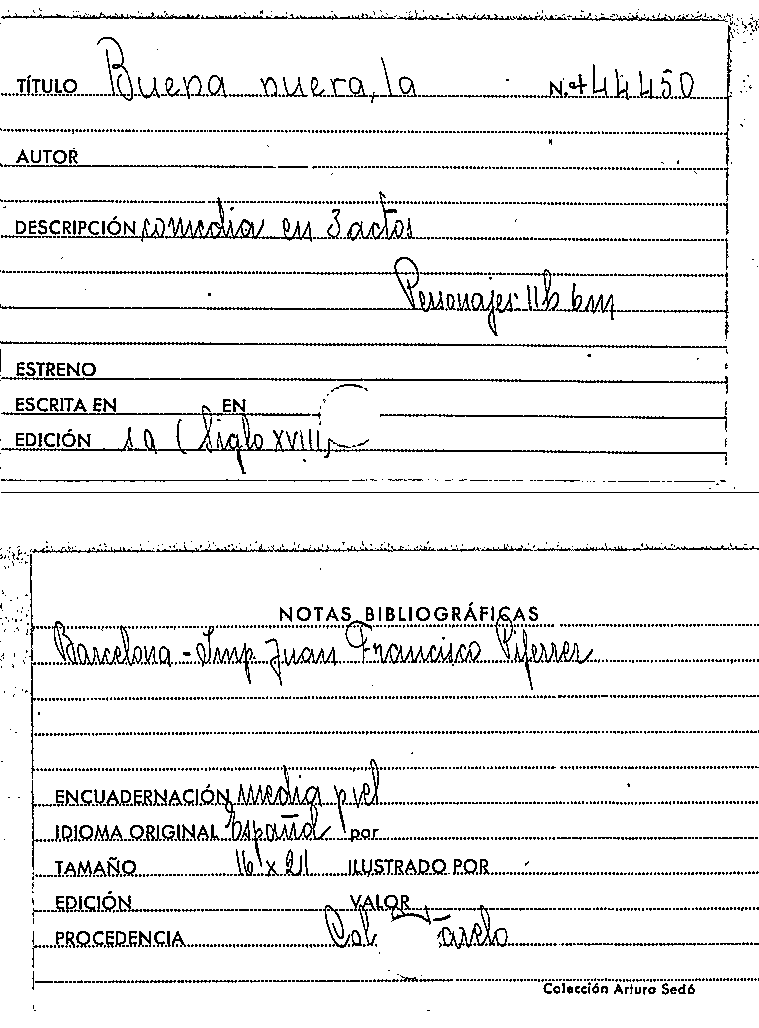 TÍTULO Buena nuera, la N.º 44450
AUTOR
DESCRIPCIÓN comedia en 3 actos
Personajes: 11h 6m
ESTRENO
ESCRITA EN EN
EDICIÓN (Siglo XVIII)
NOTAS BIBLIOGRÁFICAS
Barcelona - Imp Juan Francisco Piferrer
ENCUADERNACIÓN media piel
IDIOMA ORIGINAL Español por
TAMAÑO 16 x 21 ILUSTRADO POR
EDICIÓN VALOR
PROCEDENCIA Col
Colección Arturo Sedó